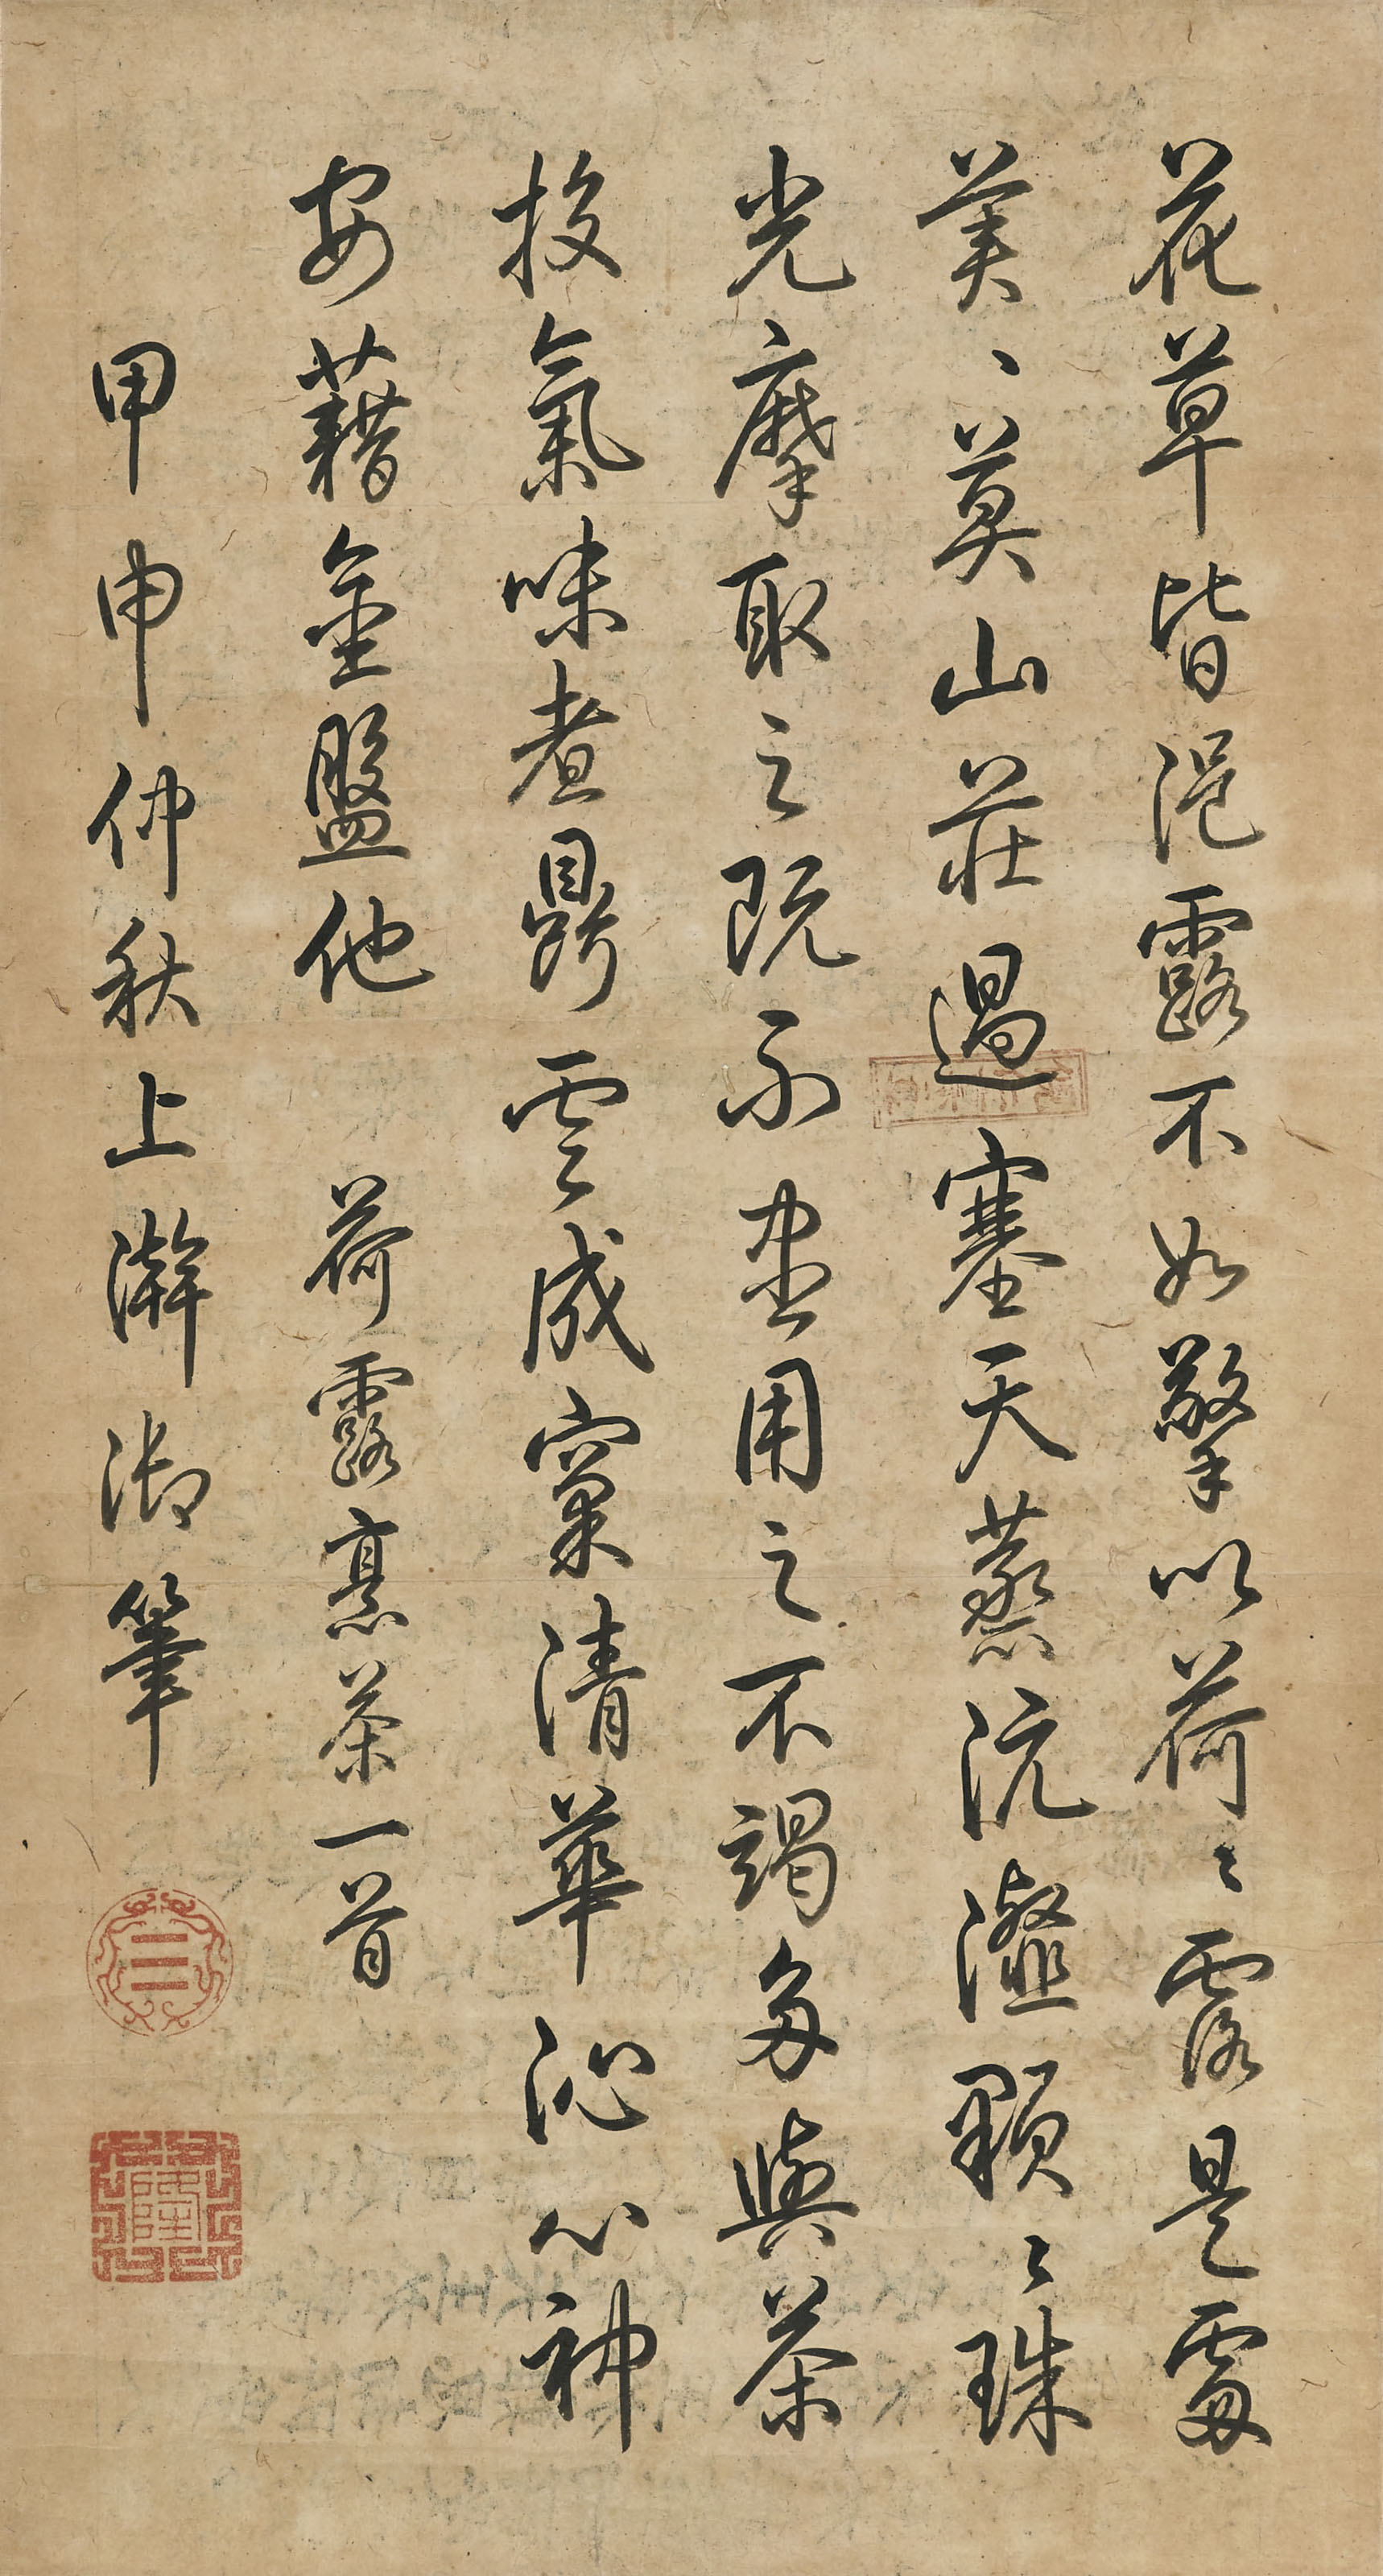 花草皆浥露不如擎以荷〻露是處
美〻莫山莊過塞天蒸沆瀣顆〻珠
光摩取之既不盡用之不竭多與茶
投氣味煮鼎雲成窠清華沁心神
安藉金盤他 荷露烹茶一首
甲申仲秋上澣御筆
☰
隆